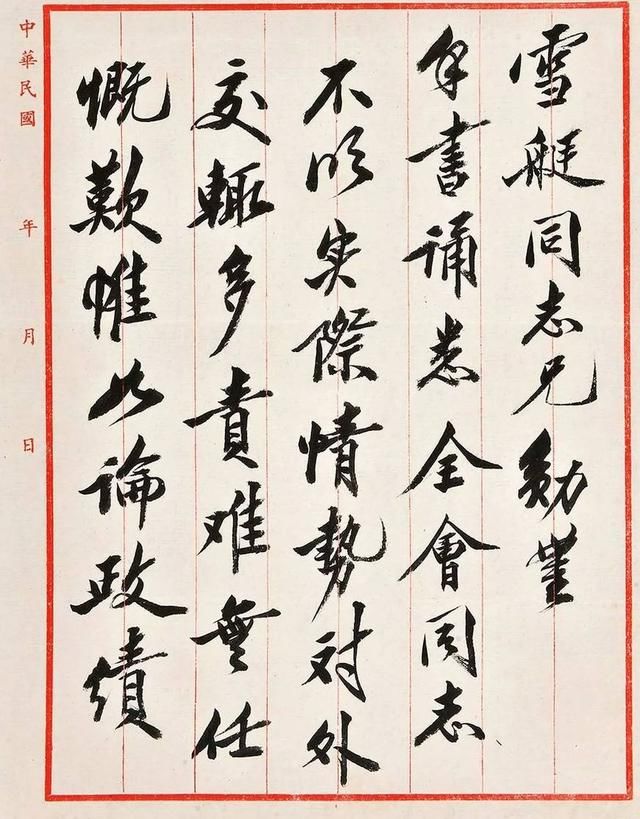 雪艇同志兄勛鑒
手書誦悉全會同志
不明实際情勢对外
交輒多責难無任
慨歎惟如論政績
中華民國 年 月 日